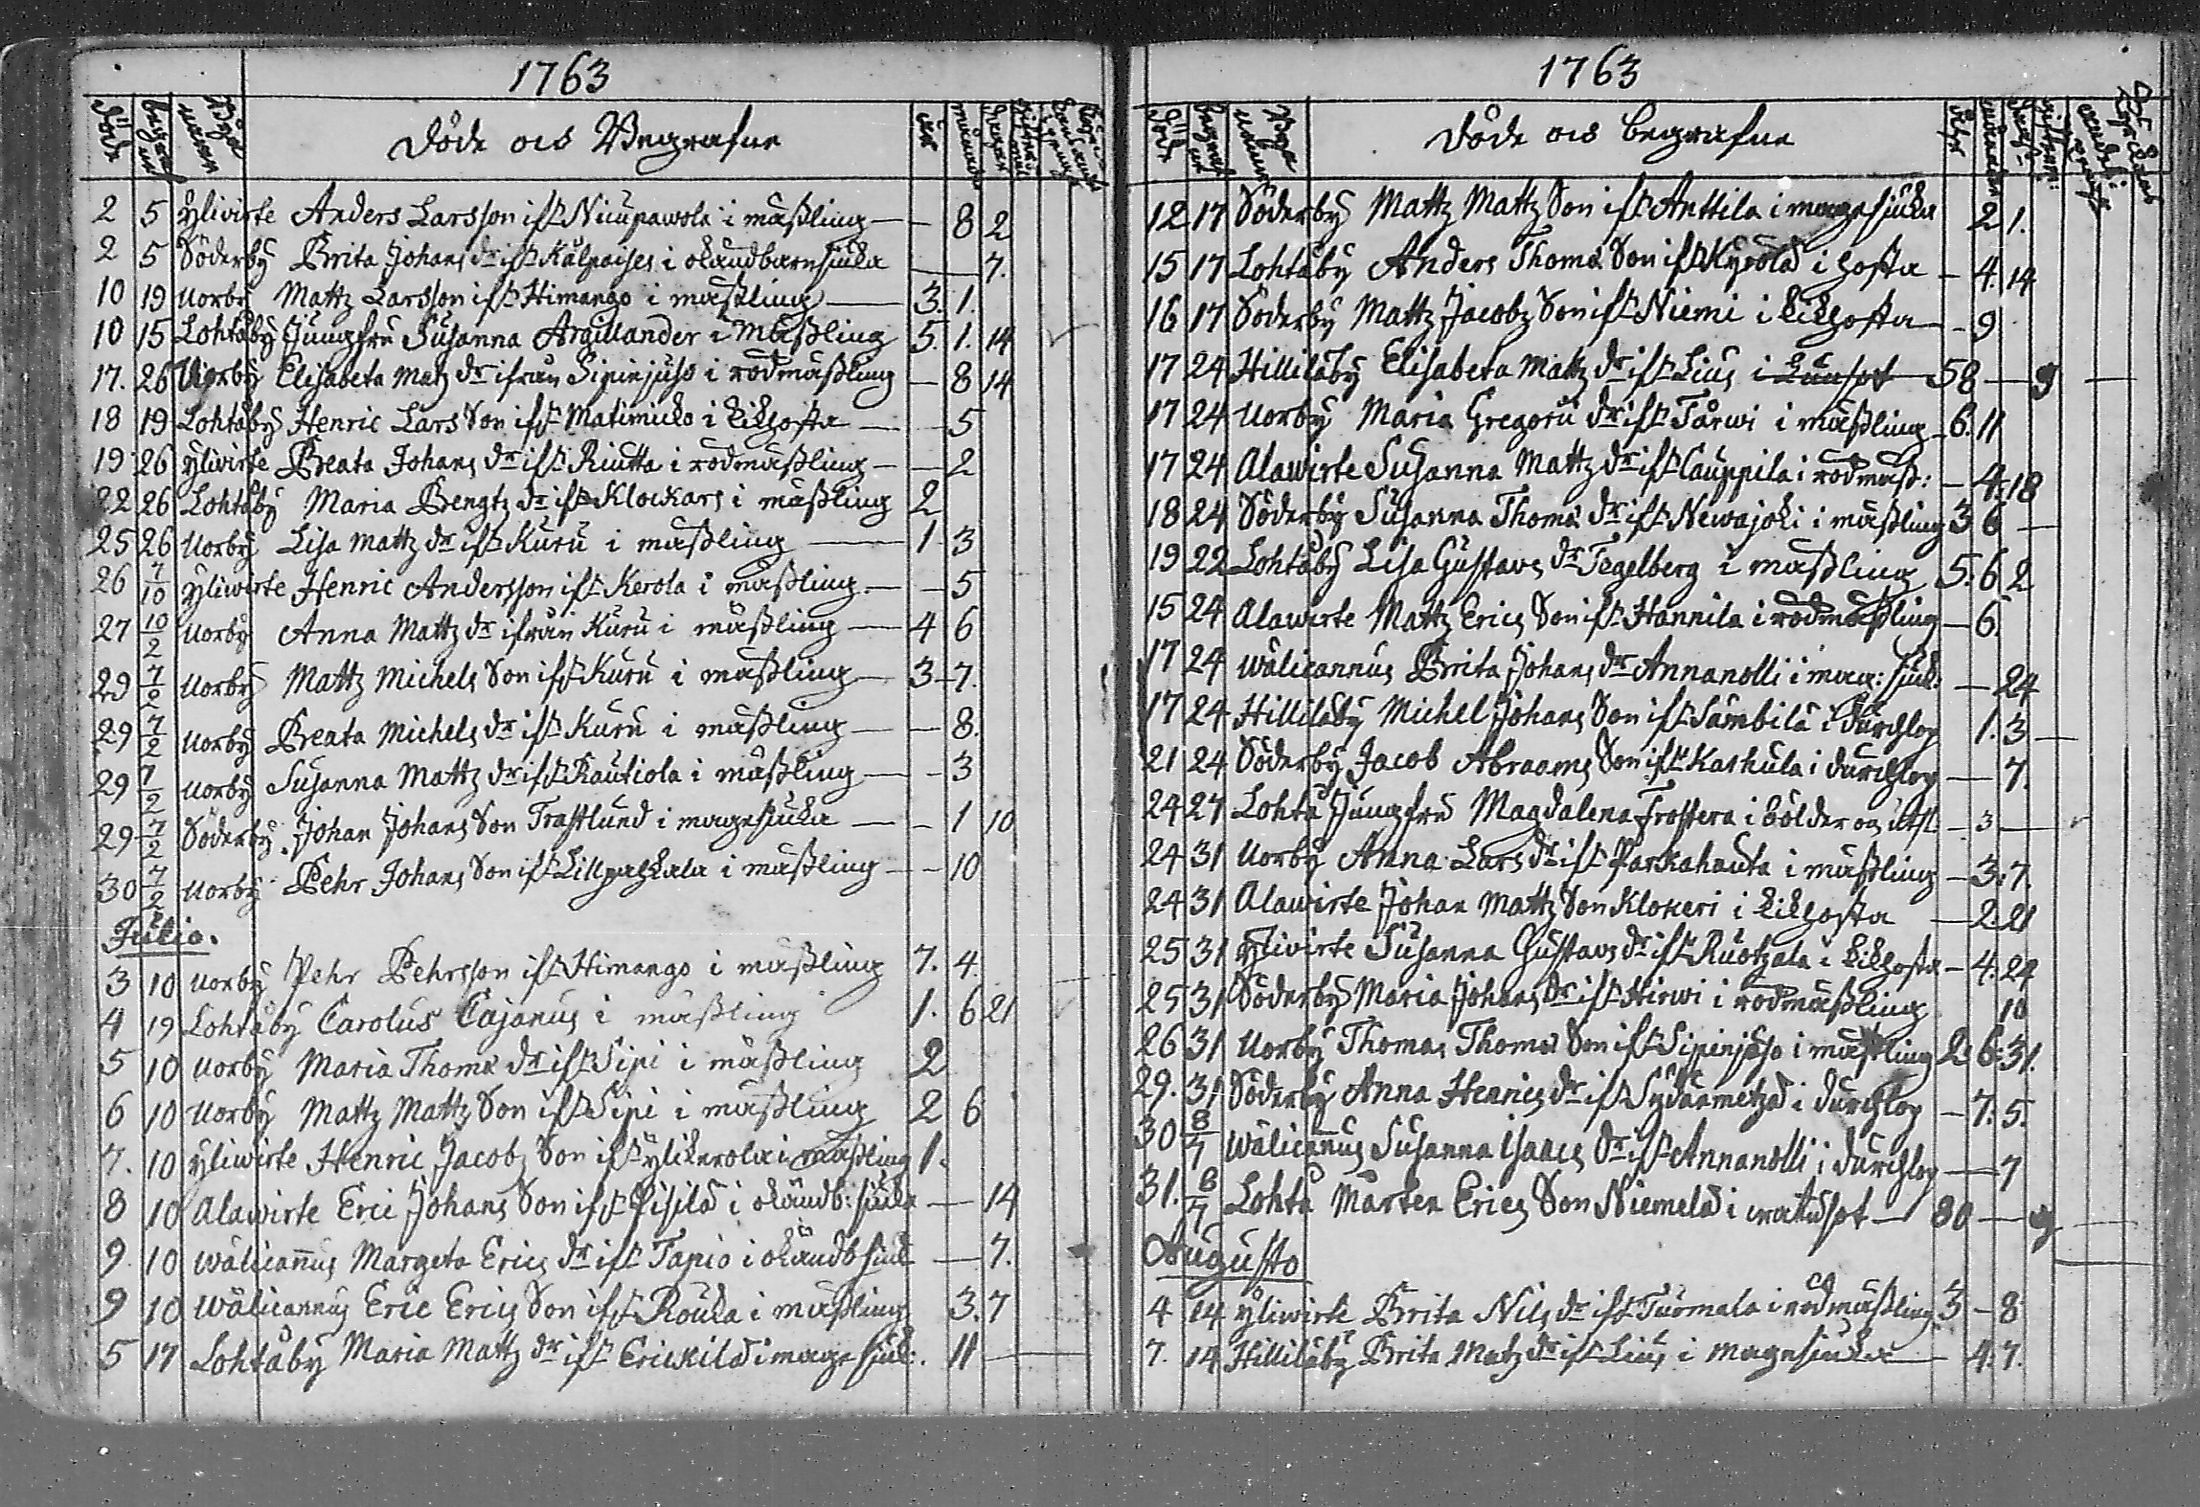 1763
Döde
Döde och Begrafne
2 5 Ylivirte Anders Larsson ifr. Niiupawola i mäßling — 8 2
2 5 Söderby Brita Johans dr ifr. Kälpaises i okändbarnsiuka — 7.
10 19 Uorby Mattz Larsson ifr. Himango i mäßling — 3. 1.
10 15 Lohtåby Jungfru Susanna Argillander i mäßling 5. 1. 14
17. 26 Uorby Elisabeta Matz dr ifrån Sipinjuso i rödmäßling — 8 14
18 19 Lohtåby Henric Lars Son ifr. Matinicko i kikhosta — 5
19 26 Ylivirte Beata Johans dr ifr. Riutta i rödmäßling — 2
22 26 Lohtåby Maria Bengtz dr ifr. Klockars i mäßling 2
25 26 Uorby Lisa Mattz dr ifr. Kuru i mäßling — 1 - 3
26 7/10 Yliwirte Henric Andersson ifr. Kerola i mäßling — 5
27 10/2 Uorby Anna Mattz dr ifrån Kuru i mäßling — 4 6
29 7/2 Uorby Mattz Michels Son ifr. Kuru i mäßling — 3 - 7.
29 7/2 Uorby Beata Michels dr ifr. Kuru i mäßling — 8.
29 7/2 Uorby Susanna Mattz dr ifr. Rautiola i mäßling — 3
29 7/2 Söderby Johan Johans Son Trastlund i magesiuka — 1 10
30 7/2 Uorby Pehr Johans Son ifr. Lillpaskala i mäßling — 10
Julio.
3 10 Uorby Pehr Pehrsson ifr. Himango i mäßling 7. 4.
4 19 Lohtåby Carolus Cajanus i mäßling 1. 6 21
5 10 Uorby Maria Thomæ dr ifr. Sipi i mäßling 2
6 10 Uorby Mattz Mattz Son ifr. Sipi i mäßling 2 6
7. 10 Yliwirte Henric Jacobz Son ifr. Ylikerola i mäßling 1.
8 10 Alawirte Eric Johans Son ifr. Pisilä i okändb: siuka — 14
9. 10 Wälicannus Margeta Erics dr ifr. Tapio i okändb siuk — 7.
9 10 Wälicannus Eric Erics Son ifr. Rouka i mäßling 3. 7
5 17 Lohtåby Maria Mattz dr ifr. Erickilä i mage siuk: 11 —
1763
Döde
Döde och begrafne
12 17 Söderby Mattz Mattz Son ifr. Anttila i magesiuka 2 1.
15 17 Lohtåby Anders Thomæ Son ifr. Kyrölä i hosta — 4. 14
16 17 Söderby Mattz Jacobz Son ifr. Niemi i kikhosta — 9
17 24 Hillilåby Elisabeta Mattz dr ifr. Lius i Lunsot 58 — g —
17 24 Uorby Maria Gregorii dr ifr. Tårwi i mäßling - 6. 11
17 24 Alawirte Susanna Mattz dr ifr. Cauppila i rödmäß: — 4. 18
18 24 Söderby Susanna Thomæ dr ifr. Newajoki i mäßling 3 6 —
19 22 Lohtåby Lisa Gustavs dr Tegelberg i mäßling 5. 6 2
15 24 Alawirte Mattz Erics Son ifr. Hannila i rödmäßling — 6.
17 24 Wälicannus Brita Johans dr Annanolli i mag: siuk: — 24
17 24 Hillilåby Michel Johans Son ifr. Sämbilä i durchlop 1. 3 —
21 24 Söderby Jacob Abraams Son ifr. Kashula i durchlop — 7.
24 27 Lohtå Jungfru Magdalena Frostera i bölder og utsl. - 3 —
24 31 Uorby Anna Lars dr ifr. Parkahauta i mäßling — 3. 7.
24 31 Alawirte Johan Mattz Son Klokeri i kikhosta — 2. 21
25 31 Ylivirte Susanna Gustavs dr ifr. Ruotzala i kikhosta — 4. 24
25 31 Söderby Maria Johans dr ifr. Hirwi i rödmäßling 10
26 31 Uorby Thomas Thomæ Son ifr. Sipinjuso i mäßling 2. 6. 31.
29. 31 Söderby Anna Henrics dr ifr. Sydänmetzä i durchlop — 7. 5.
30 8/7 Wälicannus Susanna Isaacs dr ifr. Annanolli i durchlop — 7
31. 8/7 Lohtå Mårten Erics Son Niemelä i 80 — g
Augusto
4 14 Yliwirte Brita Nils dr ifr. Tuomala i rödmäßling 3 - 8
7. 14 Hillilåby Brita Matz dr ifr. Lius i magesiuka — 4. 7.